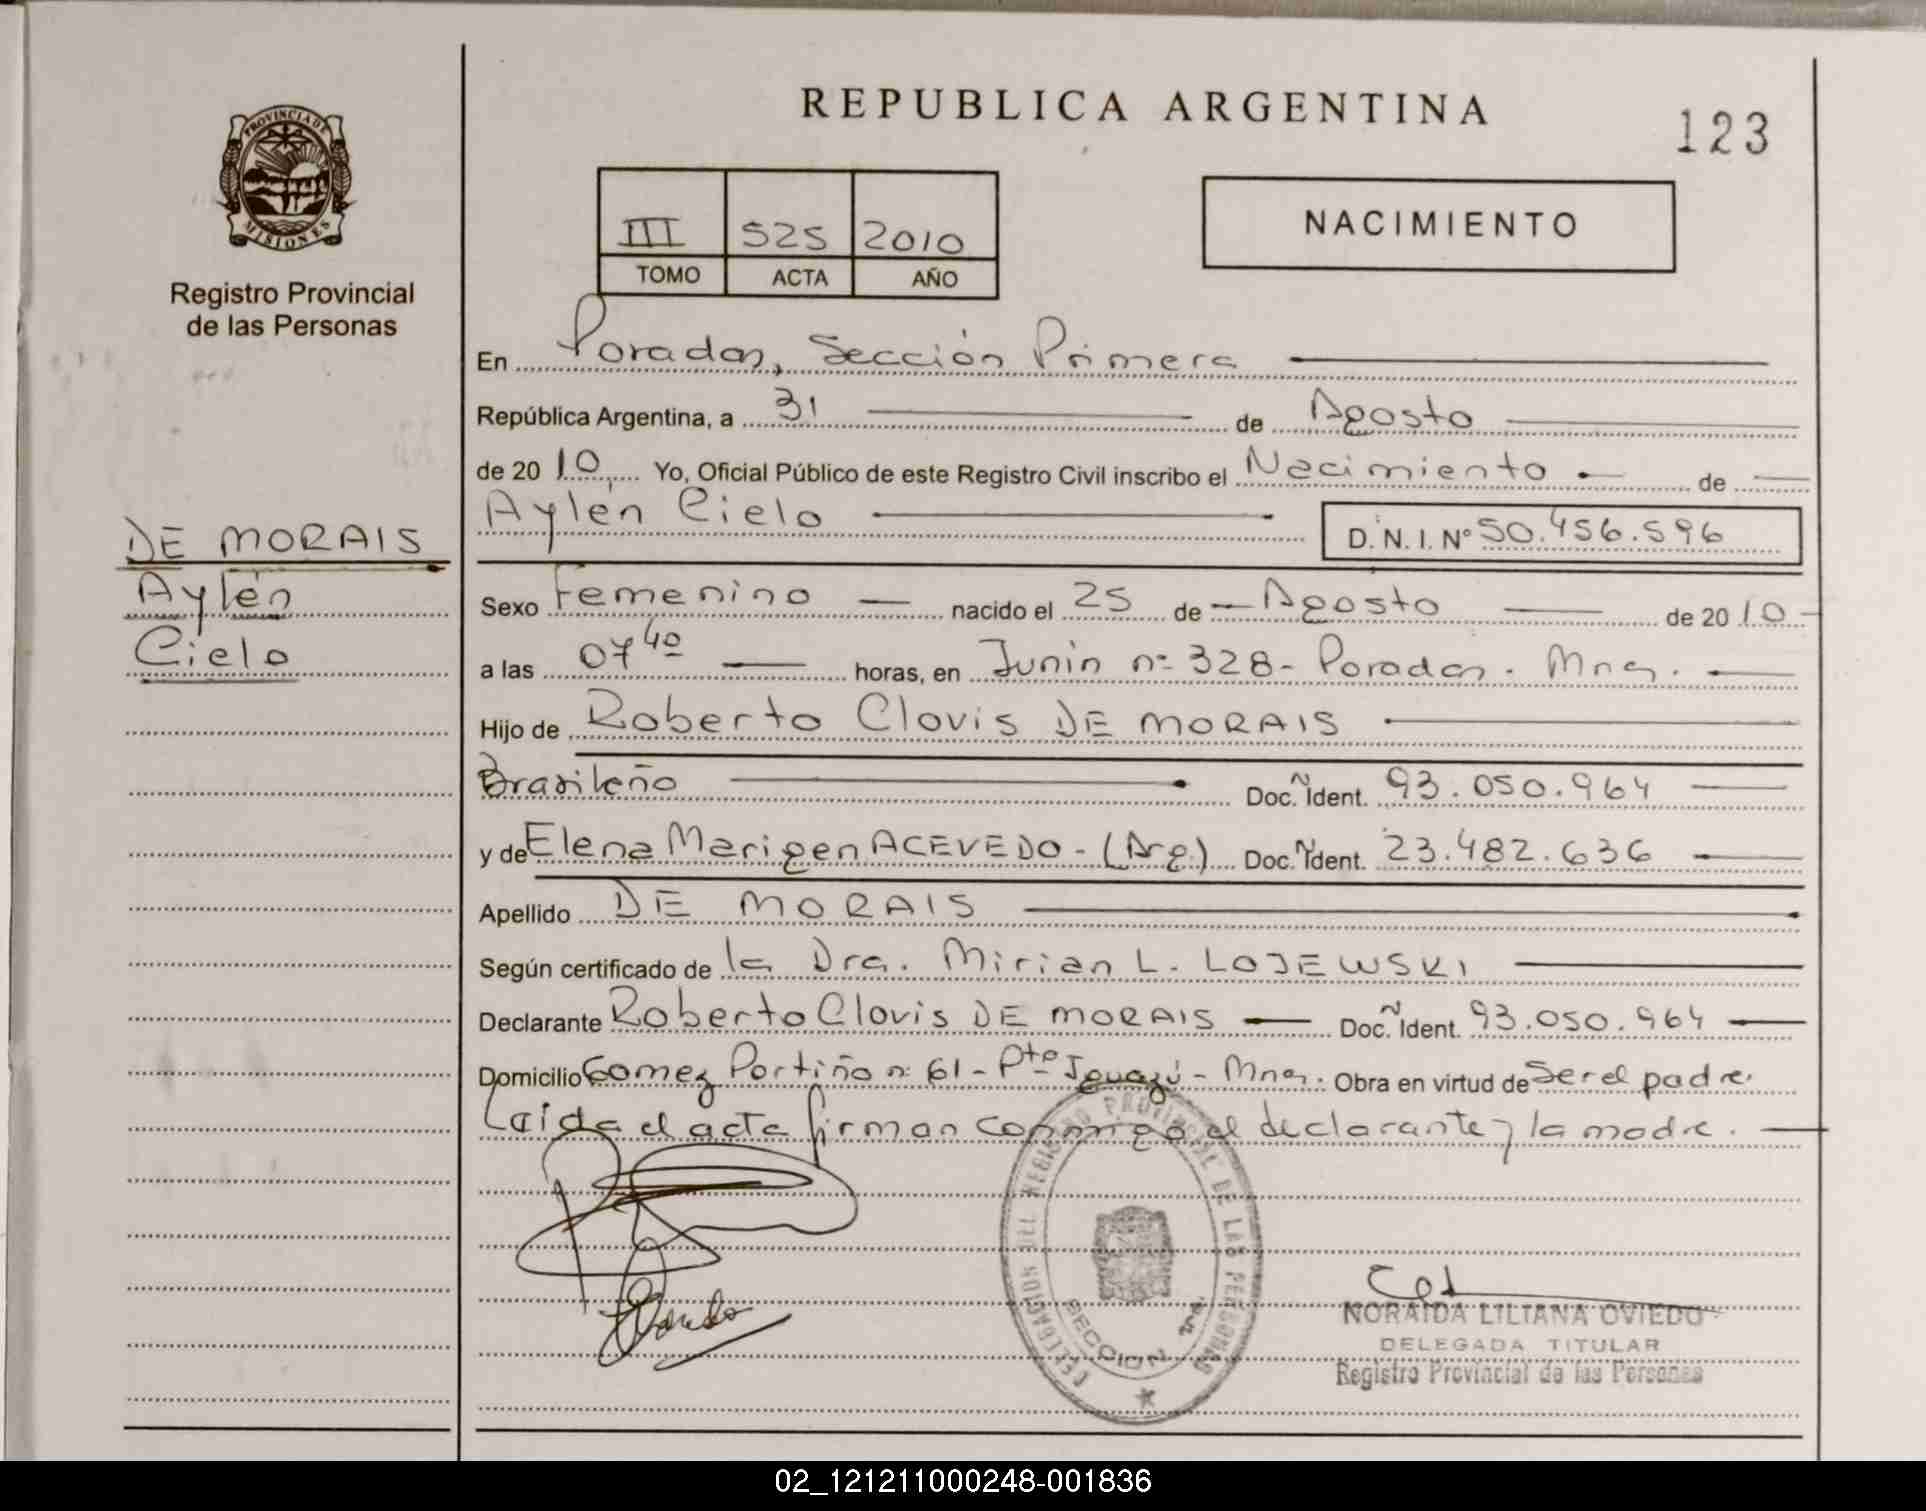 REPUBLICA ARGENTINA
123
PROVINCIA DE
MISIONES
Registro Provincial
de las Personas
III 525 2010
TOMO ACTA AÑO
NACIMIENTO
En Posadas, Sección Primera
República Argentina, a 31 de Agosto
de 2010 Yo, Oficial Público de este Registro Civil inscribo el Nacimiento de
Aylén Cielo
D.N.I. Nº 50.456.596
DE MORAIS
Aylén
Cielo
Sexo Femenino nacido el 25 de Agosto de 2010
a las 07 40 horas, en Junín nº 328 - Posadas - Mnes.
Hijo de Roberto Clovis DE MORAIS
Brasileño Doc. Ident. 93.050.964
y de Elena Marigen ACEVEDO - (Arg.) Doc. Ident. 23.482.636
Apellido DE MORAIS
Según certificado de la Dra. Mirian L. LOJEWSKI
Declarante Roberto Clovis DE MORAIS Doc. Ident. 93.050.964
Domicilio Gomez Portiño nº 61 - Pto Iguazú - Mnes. Obra en virtud de Ser el padre.
Leída el acta firman conmigo el declarante y la madre.
DELEGACION DEL REGISTRO PROVINCIAL DE LAS PERSONAS
SECCION 1ra.
NORAIDA LILIANA OVIEDO
DELEGADA TITULAR
Registro Provincial de las Personas
02_121211000248-001836